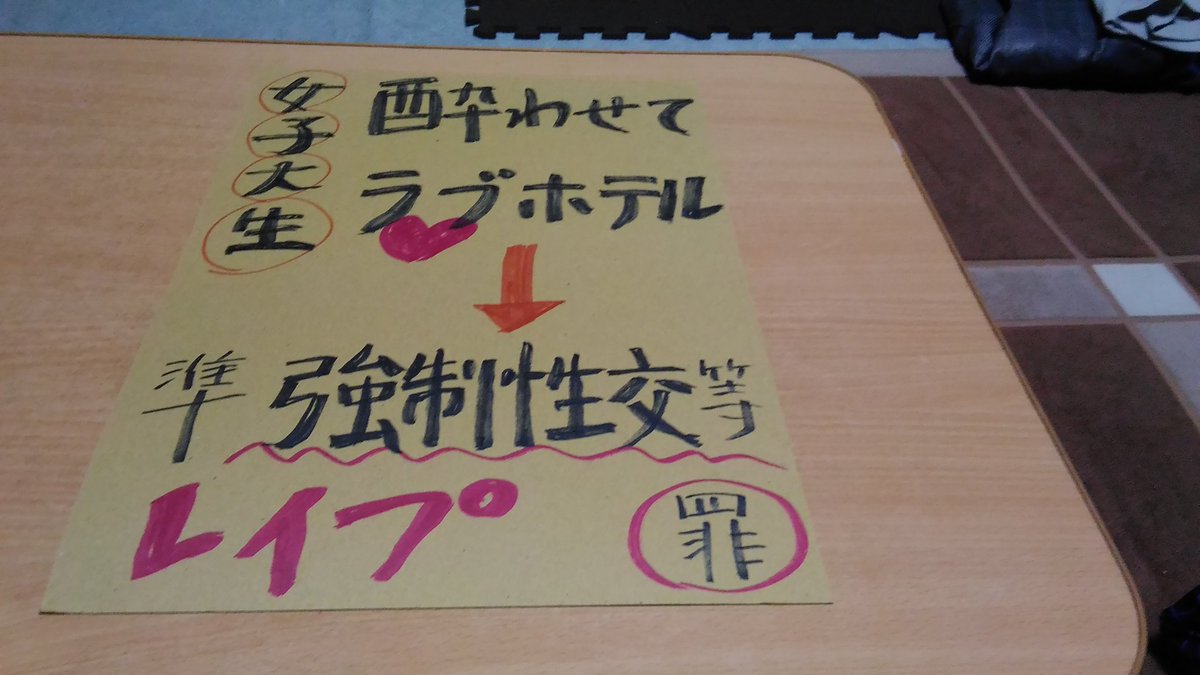 女子大生
酔わせて
ラブホテル
準強制性交等
レイプ
罪